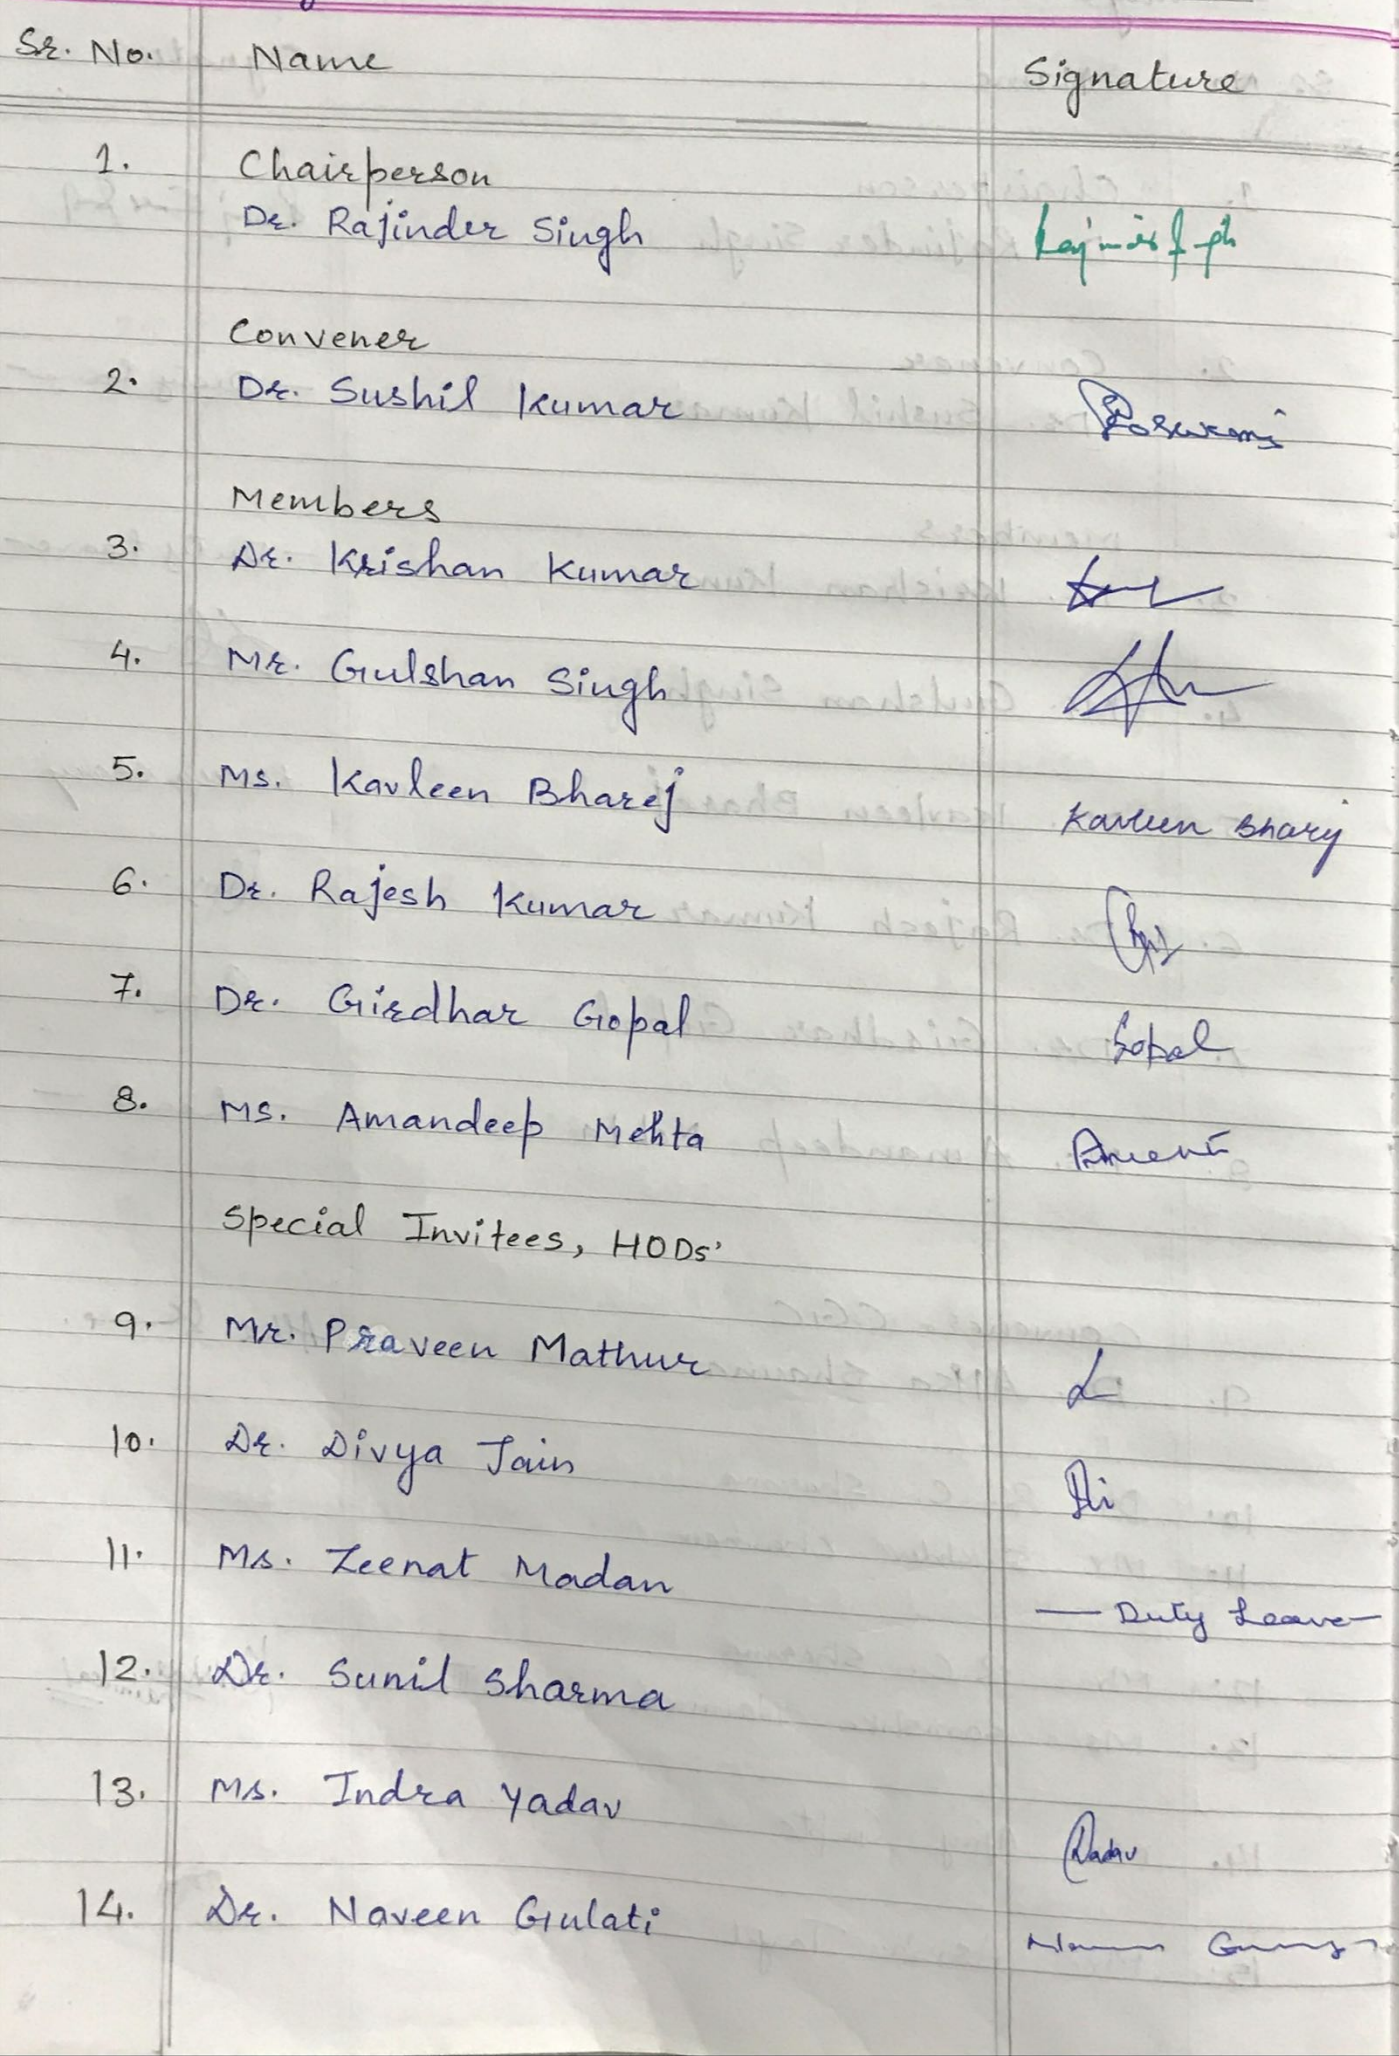 Sr. No. Name Signature
1. Chairperson
Dr. Rajinder Singh
Convener
2. Dr. Sushil Kumar
Members
3. Dr. Krishan Kumar
4. Mr. Gulshan Singh
5. Ms. Kavleen Bharej Kavleen Bharej
6. Dr. Rajesh Kumar
7. Dr. Girdhar Gopal Gopal
8. Ms. Amandeep Mehta
Special Invitees, HODs'
9. Mr. Praveen Mathur
10. Dr. Divya Jain
11. Ms. Zeenat Madan — Duty Leave —
12. Dr. Sunil Sharma
13. Ms. Indra Yadav Yadav
14. Dr. Naveen Gulati